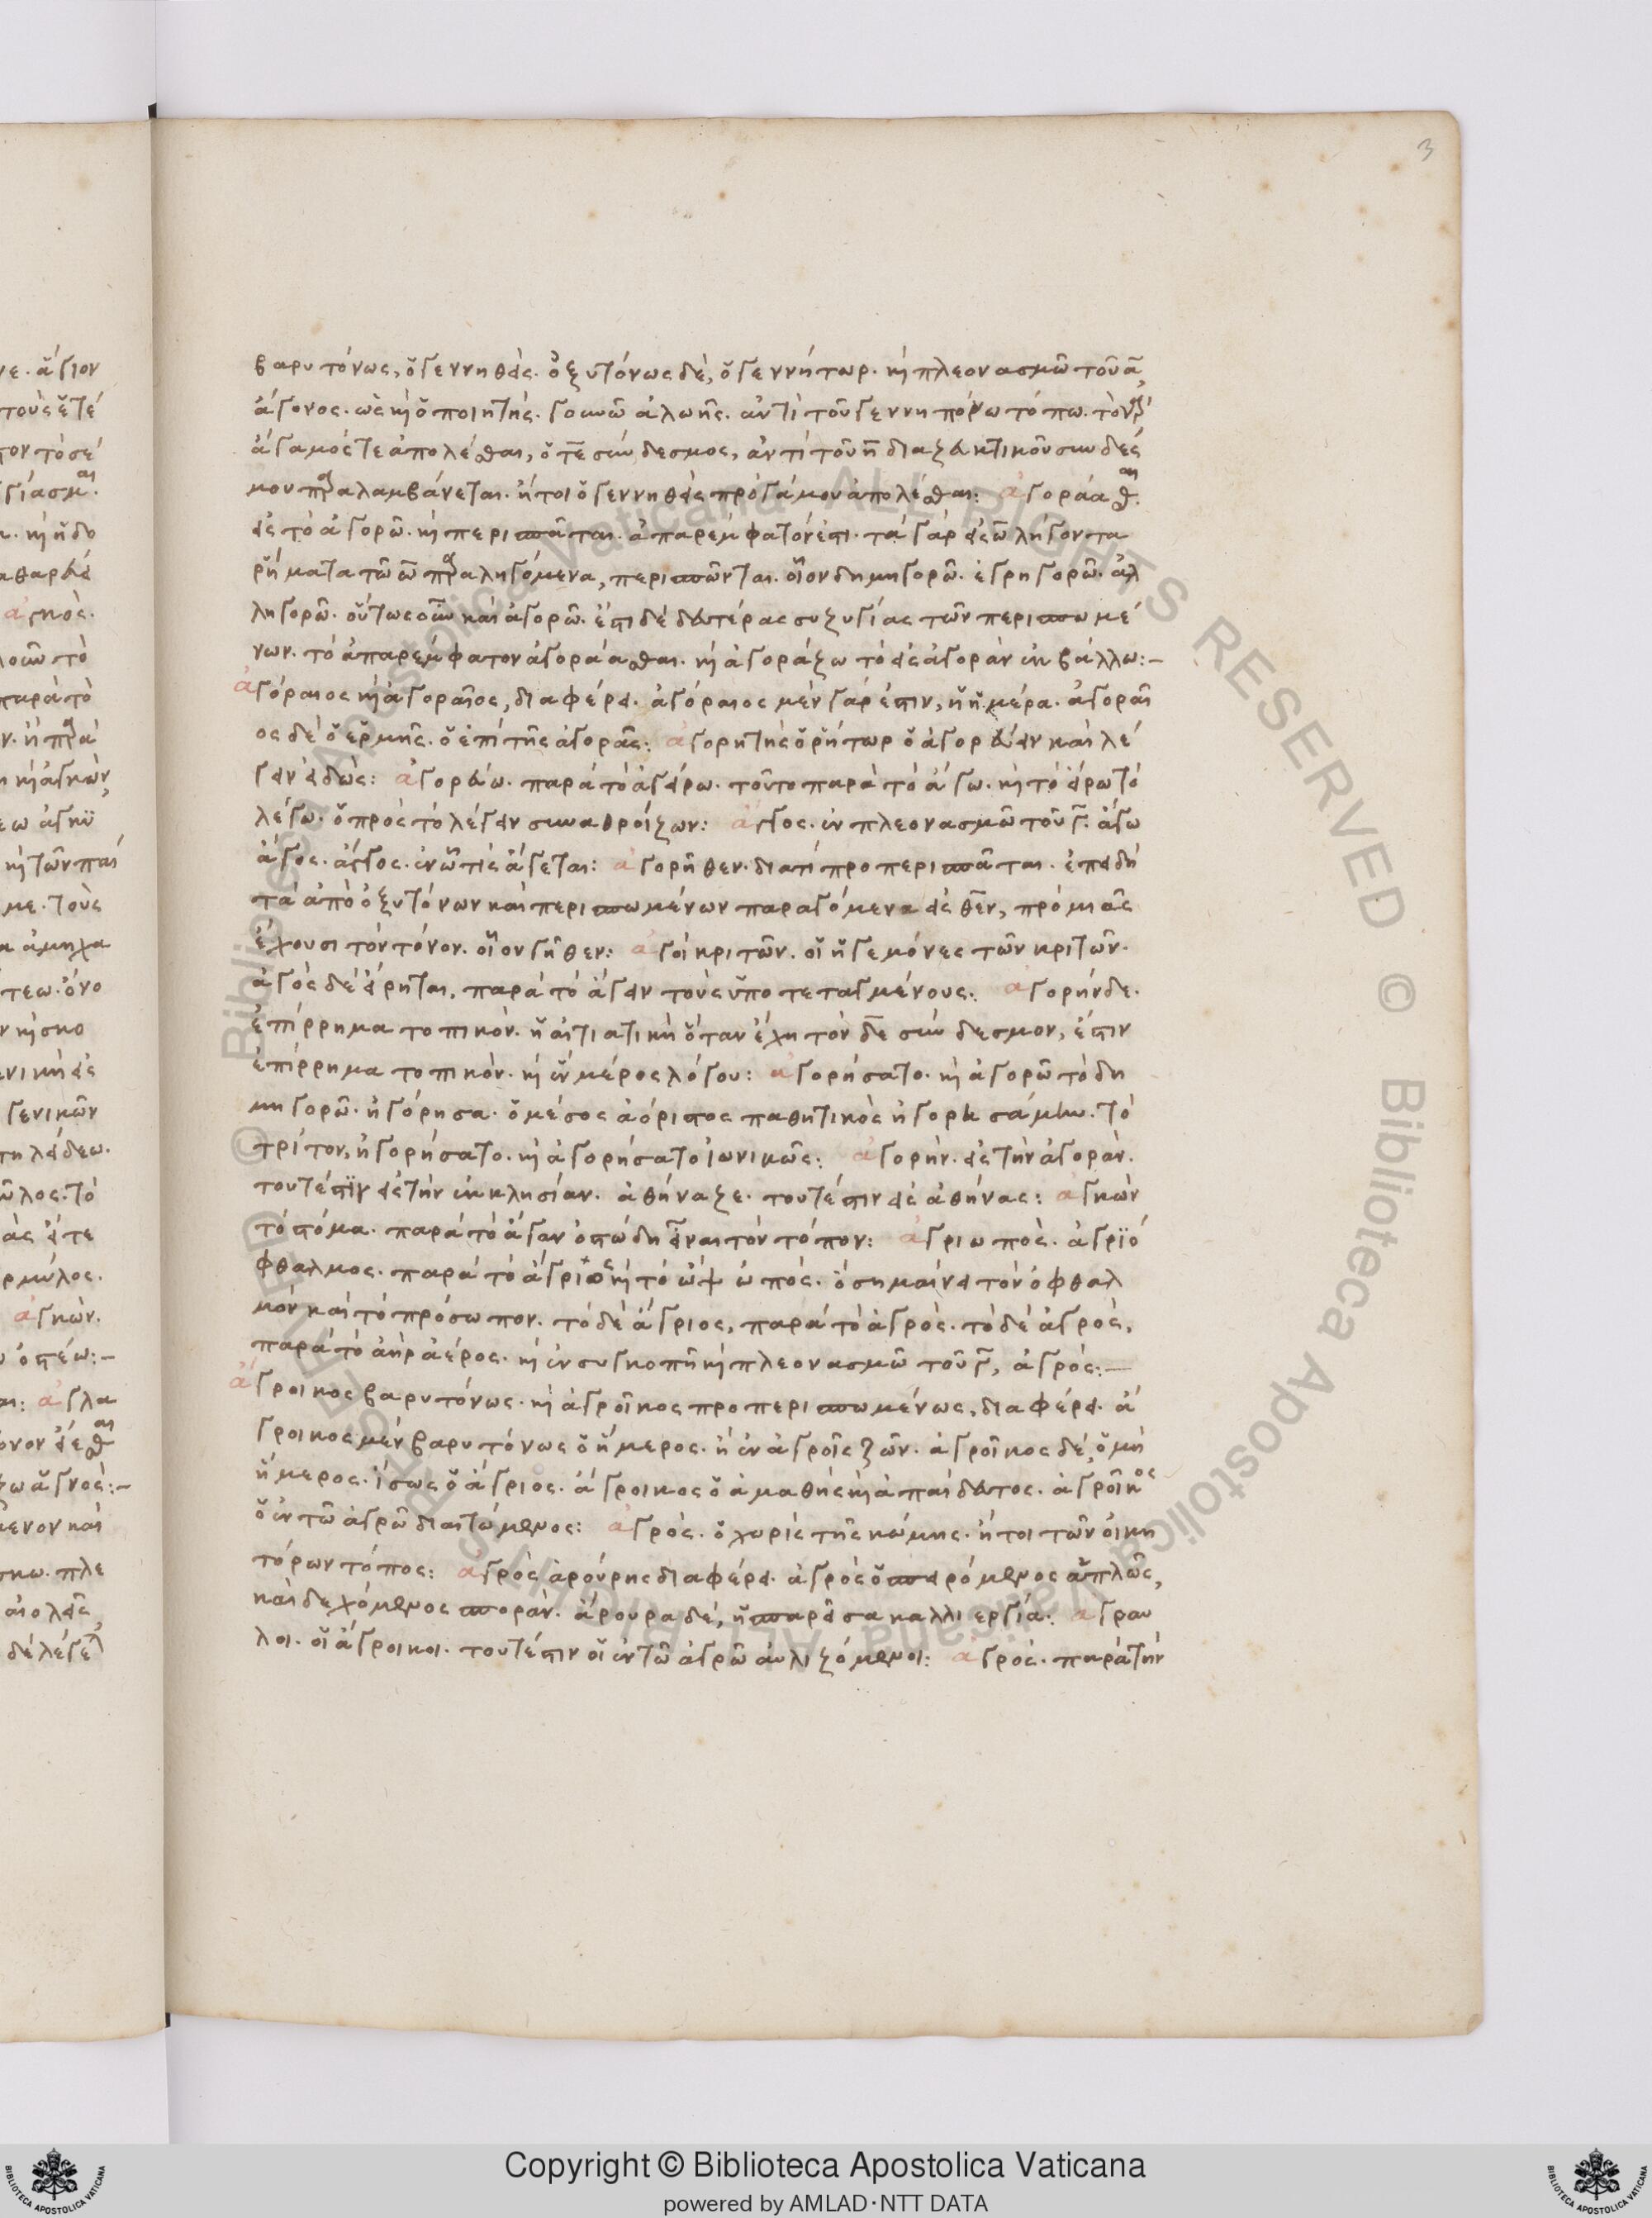 3
βαρυτόνως, ὁ γεννηθείς. ὀξυτόνως δὲ, ὁ γεννήτωρ. καὶ πλεονασμῶ τοῦ α,
ἄγονος. ὡς καὶ ὁ ποιητής. γουνῶ ἀλωῆς. ἀντὶ τοῦ γεννη πόρω τόπω. τὸν
ἄγαμός τε ἀπολέσθαι, ὁ τε σύνδεσμος, ἀντὶ τοῦ η διαζευκτικοῦ συνδέσ
μου παραλαμβάνεται. ἤτοι ὁ γεννηθεὶς πρὸ γάμου ἀπολέσθαι: ἀγοράασθαι.
εἰς τὸ ἀγορῶ. καὶ περισπᾶται. ἀπαρέμφατόν ἐστι. τὰ γὰρ εἰς ω λήγοντα
ῥήματα τῶ ω παραληγόμενα, περισπῶνται. οἷον δημηγορῶ. ἐγρηγορῶ. ἀλ
ληγορῶ. οὕτως οὖν καὶ ἀγορῶ. ἔστι δὲ δευτέρας συζυγίας τῶν περισπωμέ
νων. τὸ ἀπαρέμφατον ἀγοράασθαι. καὶ ἀγοράζω τὸ εἰς ἀγορὰν ἐκβάλλω:–
ἀγόραιος καὶ ἀγοραῖος, διαφέρει. ἀγόραιος μὲν γάρ ἐστιν, ἡ ἡμέρα. ἀγοραῖ
ος δὲ ὁ ἑρμῆς. ὁ ἐπὶ τῆς ἀγορᾶς: ἀγορητὴς ὁ ῥήτωρ ὁ ἀγορεύειν καὶ λέ
γειν εἰδώς: ἀγορεύω. παρὰ τὸ ἀγείρω. τοῦτο παρὰ τὸ ἄγω. καὶ τὸ εἴρω τὸ
λέγω. ὁ πρὸς τὸ λέγειν συναθροίζων: ἄγγος. ἐν πλεονασμῶ τοῦ γ. ἄγω
ἄγος. ἄγγος. ἐν ὧ τις ἄγεται: ἀγορῆθεν. διατί προπερισπᾶται. ἐπειδὴ
τὰ ἀπὸ ὀξυτόνων καὶ περισπωμένων παραγόμενα εἰς θεν, πρὸ μιᾶς
ἔχουσι τὸν τόνον. οἷον γῆθεν: ἀγοὶ κριτῶν. οἱ ἡγεμόνες τῶν κριτῶν.
ἀγὸς δὲ εἴρηται, παρὰ τὸ ἄγειν τοὺς ὑποτεταγμένους: ἀγορήνδε.
ἐπίρρημα τοπικόν. ἡ αἰτιατικὴ ὅταν ἔχη τὸν δε σύνδεσμον, ἔστιν
ἐπίρρημα τοπικόν. καὶ ἓν μέρος λόγου: ἀγορήσατο. καὶ ἀγορῶ τὸ δη
μηγορῶ. ἠγόρησα. ὁ μέσος ἀόριστος παθητικὸς ἠγορησάμην. τὸ
τρίτον, ἠγορήσατο. καὶ ἀγορήσατο ἰωνικῶς: ἀγορήν. εἰς τὴν ἀγοράν.
τουτέστιν εἰς τὴν ἐκκλησίαν. ἀθήναζε. τουτέστιν εἰς ἀθήνας: ἀγκὼν
τὸ στόμα. παρὰ τὸ ἄγαν ὀστώδη εἶναι τὸν τόπον: ἀγριωπός. ἀγριό
φθαλμος. παρὰ τὸ ἄγριος καὶ τὸ ὢψ ὠπός. ὃ σημαίνει τὸν ὀφθαλ
μὸν καὶ τὸ πρόσωπον. τὸ δὲ ἄγριος, παρὰ τὸ ἀγρός. τὸ δὲ ἀγρὸς,
παρὰ τὸ ἀὴρ ἀέρος. καὶ ἐν συγκοπῆ καὶ πλεονασμῶ τοῦ γ, ἀγρός:–
ἄγροικος βαρυτόνως. καὶ ἀγροῖκος προπερισπωμένως, διαφέρει. ἄ
γροικος μὲν βαρυτόνως ὁ ἥμερος. ἢ ἐν ἀγροῖς ζῶν. ἀγροῖκος δὲ, ὁ μὴ
ἥμερος. ἴσως ὁ ἄγριος. ἄγροικος ὁ ἀμαθὴς καὶ ἀπαίδευτος. ἀγροῖκος
ὁ ἐν τῶ ἀγρῶ διαιτώμενος: ἀγρός. ὁ χωρὶς τῆς κώμης. ἤτοι τῶν οἰκη
τόρων τόπος: ἀγρὸς ἀρούρης διαφέρει. ἀγρὸς ὁ σπειρόμενος ἁπλῶς,
καὶ δεχόμενος σποράν. ἄρουρα δὲ, ἡ σπαρεῖσα καλλιεργία: ἄγραυ
λοι. οἱ ἄγροικοι. τουτέστιν οἱ ἐν τῶ ἀγρῶ αὐλιζόμενοι: ἀγρός. παρὰ τὴν
Copyright © Biblioteca Apostolica Vaticana
powered by AMLAD・NTT DATA